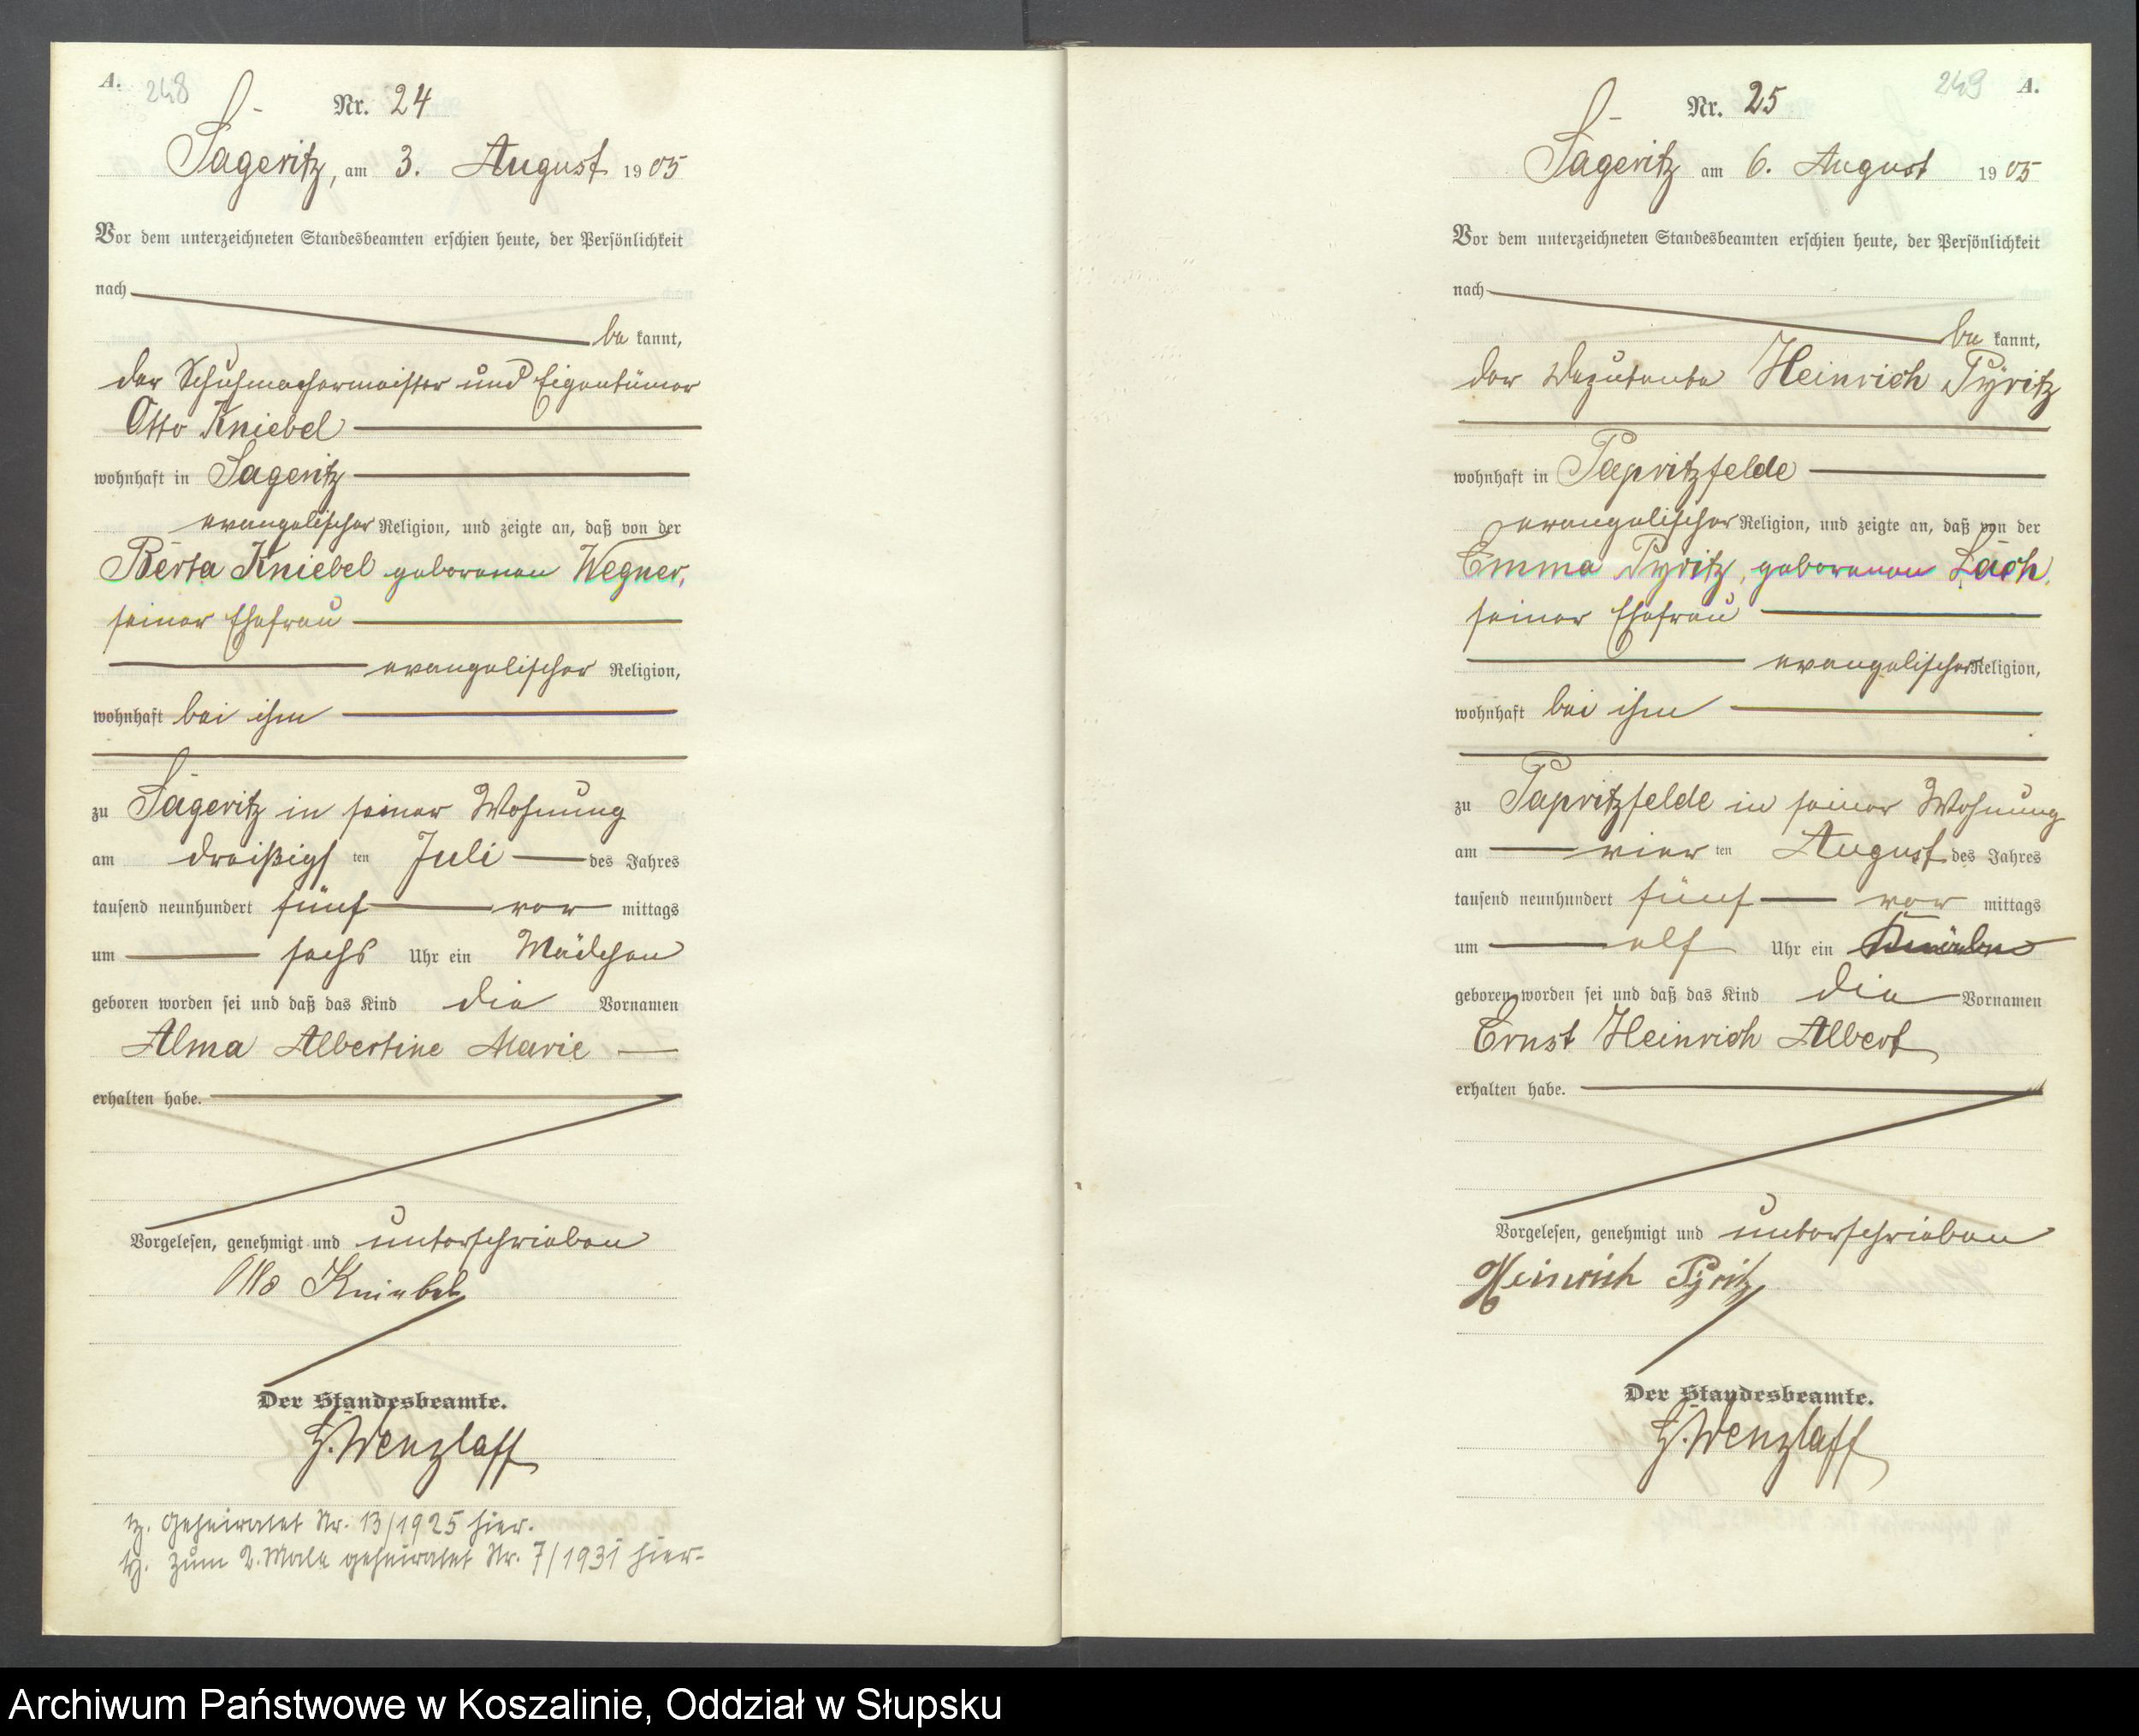 A.
248
Nr. 24
Sageritz, am 3. August 1905
Vor dem unterzeichneten Standesbeamten erschien heute, der Persönlichkeit
nach
be kannt,
der Schuhmachermeister und Eigentümer
Otto Kniebel
wohnhaft in Sageritz
evangelischer Religion, und zeigte an, daß von der
Berta Kniebel geborenen Wegner,
seiner Ehefrau
evangelischer Religion,
wohnhaft bei ihm
zu Sageritz in seiner Wohnung
am dreißigs ten Juli des Jahres
tausend neunhundert fünf vor mittags
um sechs Uhr ein Mädchen
geboren worden sei und daß das Kind die Vornamen
Alma Albertine Marie
erhalten habe.
Vorgelesen, genehmigt und unterschrieben
Otto Kniebel
Der Standesbeamte.
H. Wenzlaff
geheiratet Nr. 13/1925 hier.
zum 2. Male geheiratet Nr. 7/1931 hier.
249
A.
Nr. 25
Sageritz am 6. August 1905
Vor dem unterzeichneten Standesbeamten erschien heute, der Persönlichkeit
nach
be kannt,
der Deputante Heinrich Pyritz
wohnhaft in Papritzfelde
evangelischer Religion, und zeigte an, daß von der
Emma Pyritz, geborenen Läch,
seiner Ehefrau
evangelischer Religion,
wohnhaft bei ihm
zu Papritzfelde in seiner Wohnung
am vier ten August des Jahres
tausend neunhundert fünf vor mittags
um elf Uhr ein Knabe
geboren worden sei und daß das Kind die Vornamen
Ernst Heinrich Albert
erhalten habe.
Vorgelesen, genehmigt und unterschrieben
Heinrich Pyritz
Der Standesbeamte.
H. Wenzlaff
Archiwum Państwowe w Koszalinie, Oddział w Słupsku